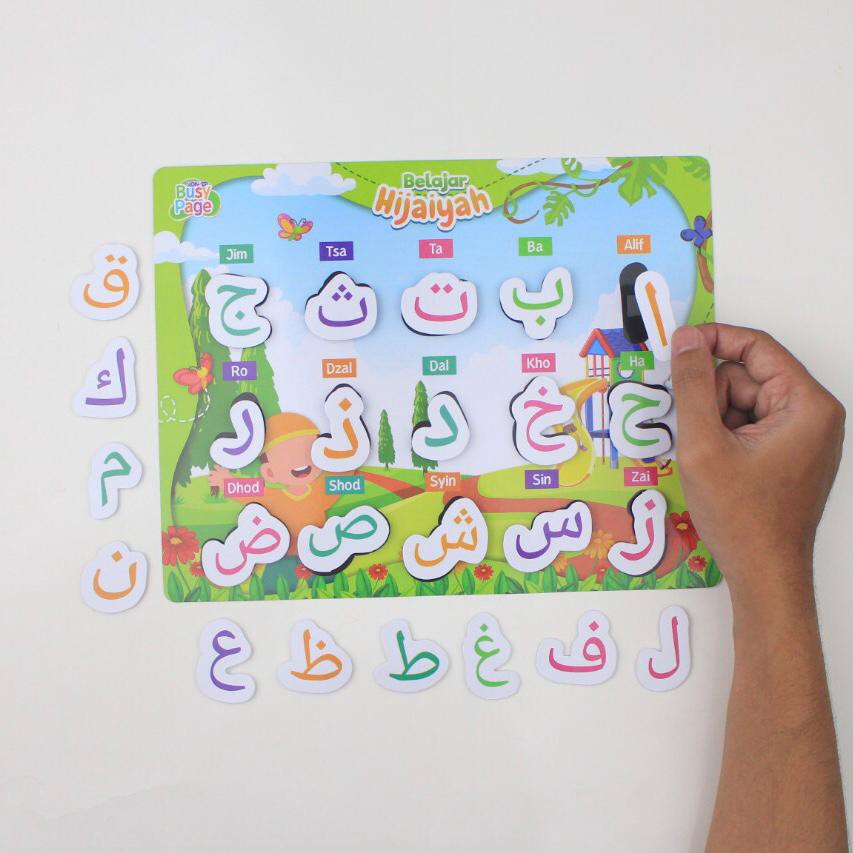 Belajar
Hijaiyah
Busy
Page
Alif Ba Ta Tsa Jim
ا ب ت ث ج
Ha Kho Dal Dzal Ro
ح خ د ذ ر
Zai Sin Syin Shod Dhod
ز س ش ص ض
ق
ك
م
ن
ل ف غ ط ظ ع